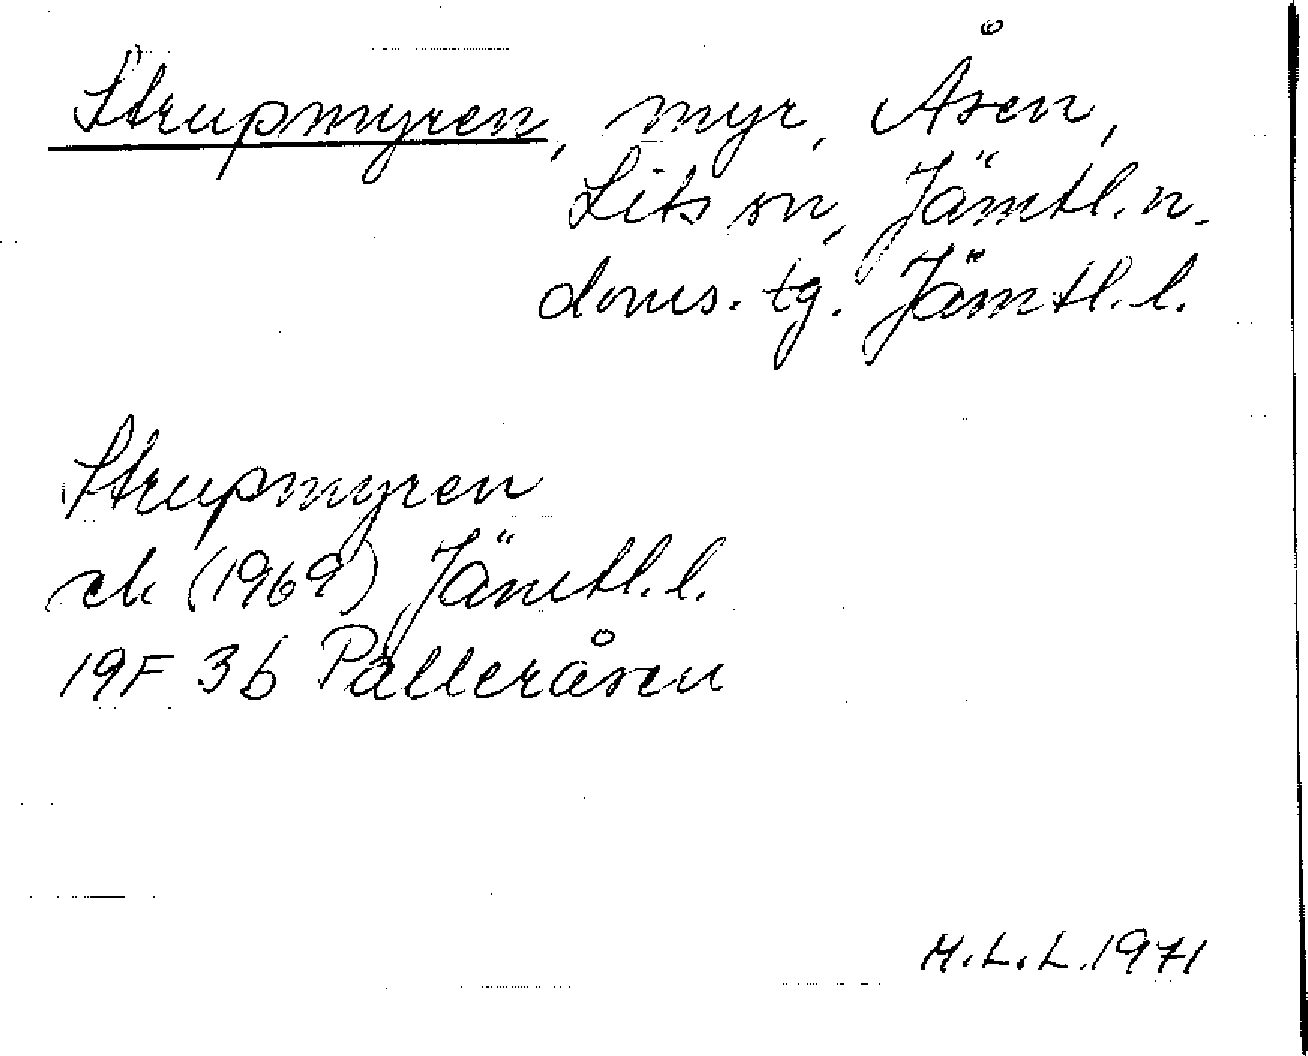 Strupmyren, myr, Åsen,
Lits sn, Jämtl. n.
doms. tg. Jämtl. l.
Strupmyren
ek (1969) Jämtl. l.
19F 3b Pålleråsen
H.L.L. 1971